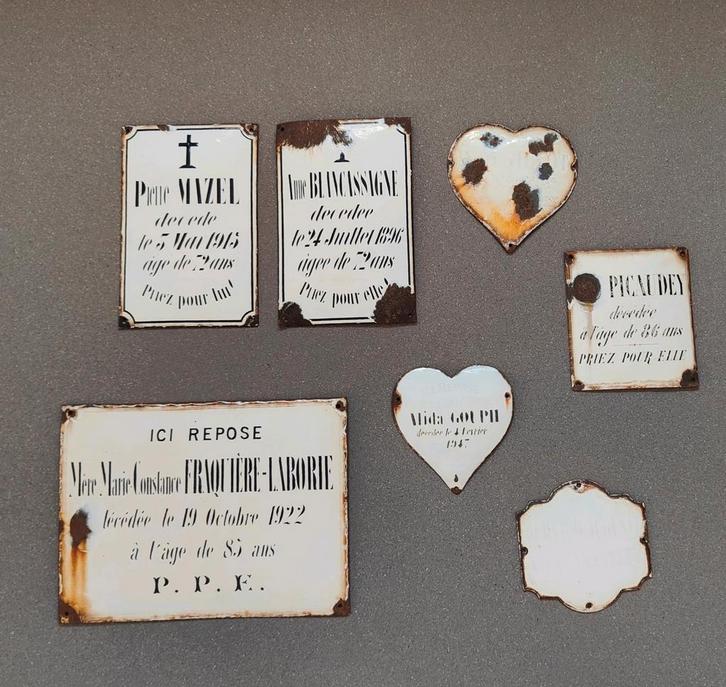 Pierre MAZEL
décédé
le 5 Mai 1915
âgé de 72 ans
Priez pour lui!
Anne BLANCASSAGNE
décédée
le 24 Juillet 1896
âgée de 72 ans
Priez pour elle!
PICAUDEY
décédée
à l'âge de 86 ans
PRIEZ POUR ELLE
Alida GOUPH
décédée le 4 Février
1947
ICI REPOSE
Mère Marie-Constance FRAQUIÈRE-LABORIE
décédée le 19 Octobre 1922
à l'âge de 85 ans
P. P. E.